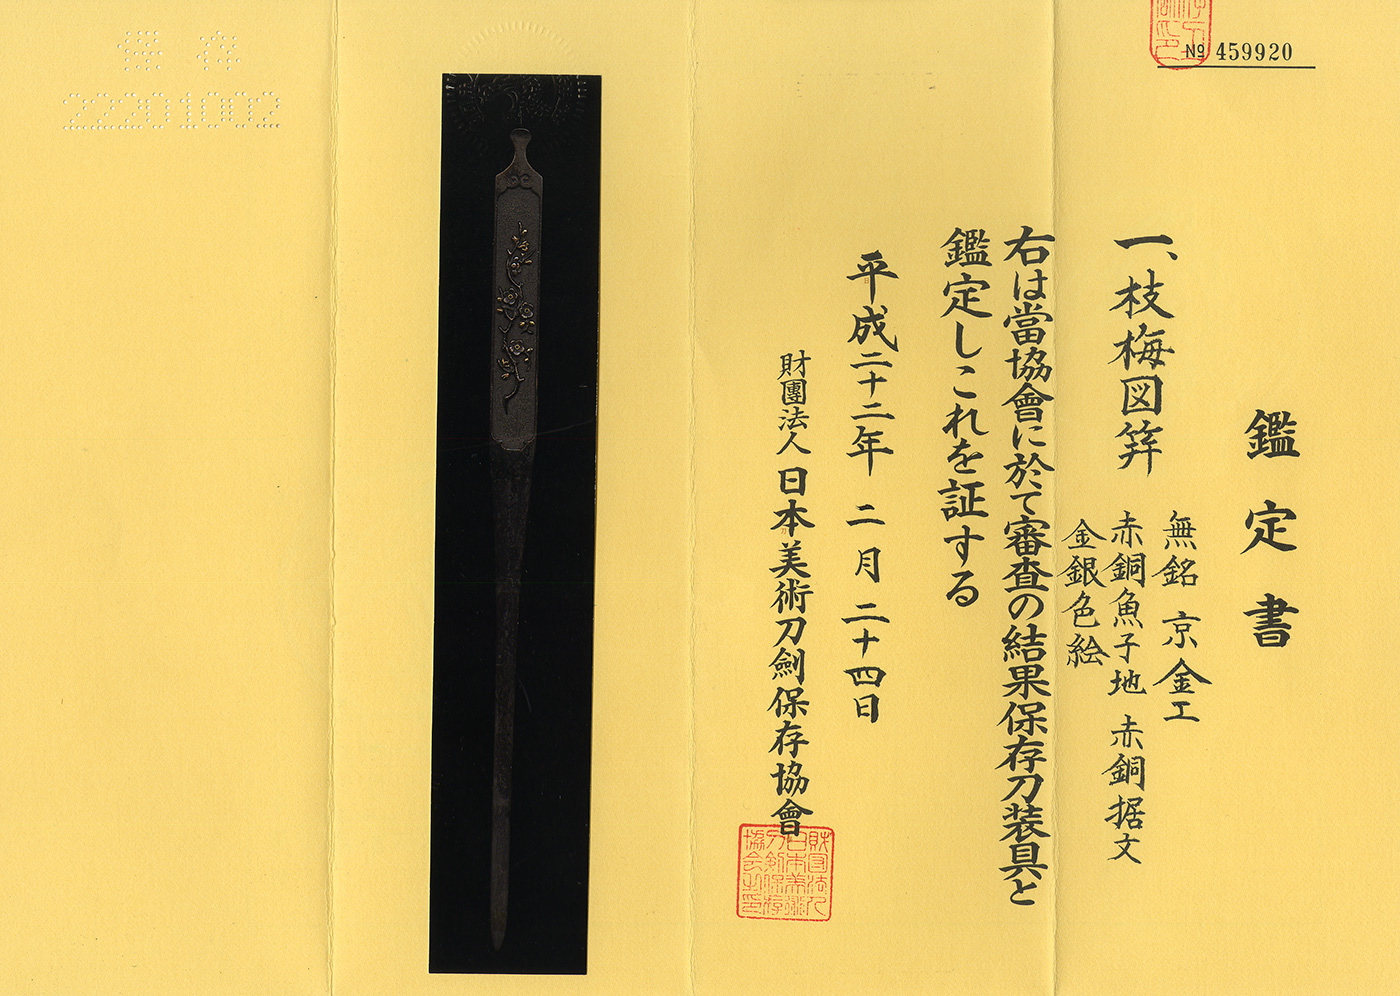 № 459920
鑑定書
一、枝梅図笄
無銘 京金工
赤銅魚子地 赤銅据文
金銀色絵
右は當協會に於て審査の結果保存刀装具と
鑑定しこれを証する
平成二十二年 二月 二十四日
財團法人 日本美術刀劍保存協會
財団法人
日本美術
刀剣保存
協会之印
保存
22201002